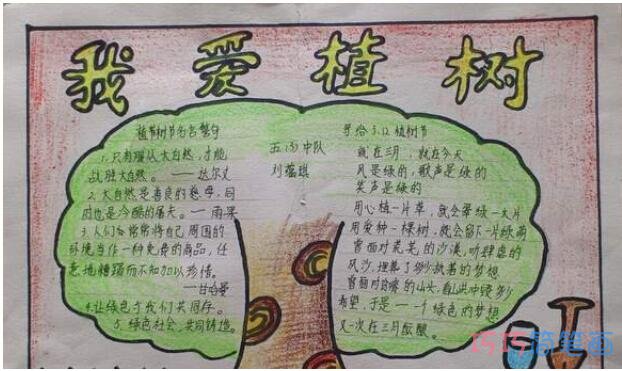 我爱植树
植树节名言警句
1.只有顺从大自然,才能
战胜大自然。——达尔文
2.大自然是善良的慈母,同
时也是冷酷的屠夫。——雨果
3.人们常常将自己周围的
环境当作一种免费的商品,任
意地糟蹋而不知加以珍惜。
——甘哈曼
4.让绿色于我们共同存。
5.绿色社会,共同铸造。
五(3)中队
刘蕴琪
写给3.12植树节
就在三月,就在今天
风是绿的,歌声是绿的
笑声是绿的
用心植一片草,就会牵绿一大片
用爱种一棵树,就会留下一片绿荫
曾面对荒芜的沙漠,听肆虐的
风沙,埋葬了多少执著的梦想
曾面对的山头,看山洪中多少
希望,于是——一个绿色的梦想
又一次在三月酝酿。
巧巧简笔画